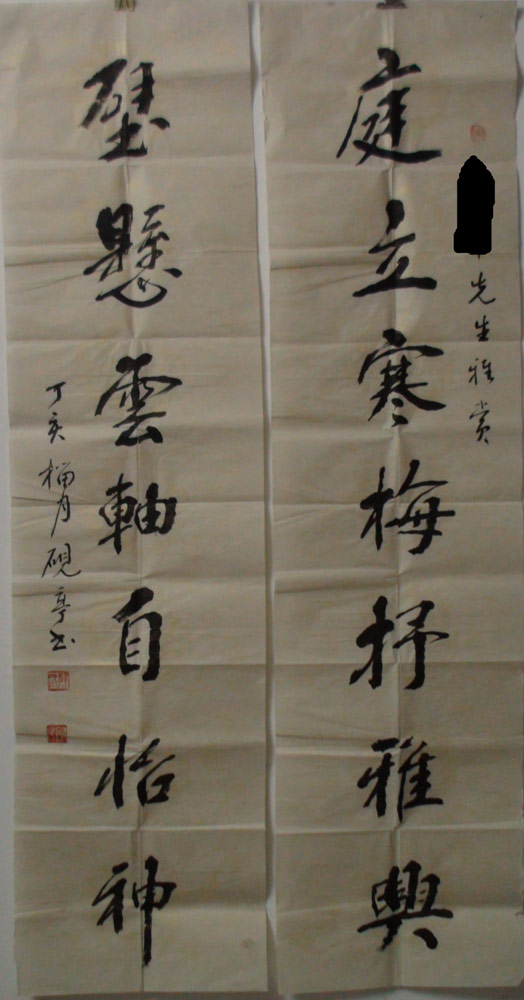 先生雅赏
庭立寒梅抒雅興
壁懸雲軸自怡神
丁亥榴月砚亭书